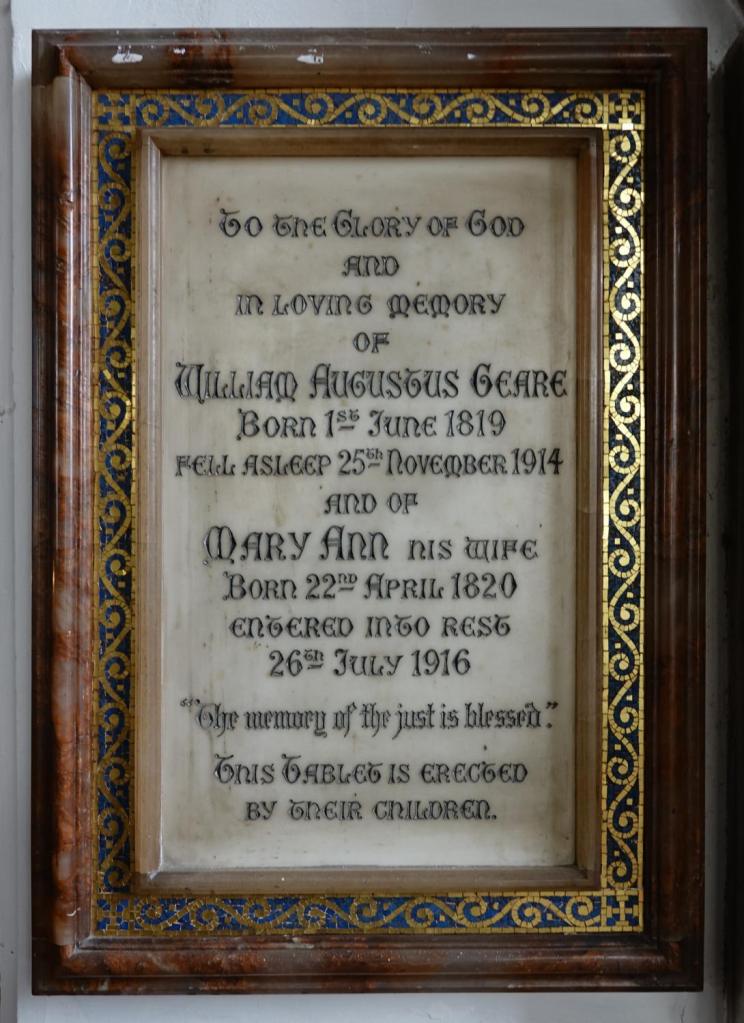 To the Glory of God
and
in loving memory
of
William Augustus Geare
Born 1st June 1819
fell asleep 25th November 1914
and of
Mary Ann his wife
Born 22nd April 1820
entered into rest
26th July 1916
"The memory of the just is blessed."
This Tablet is erected
by their children.